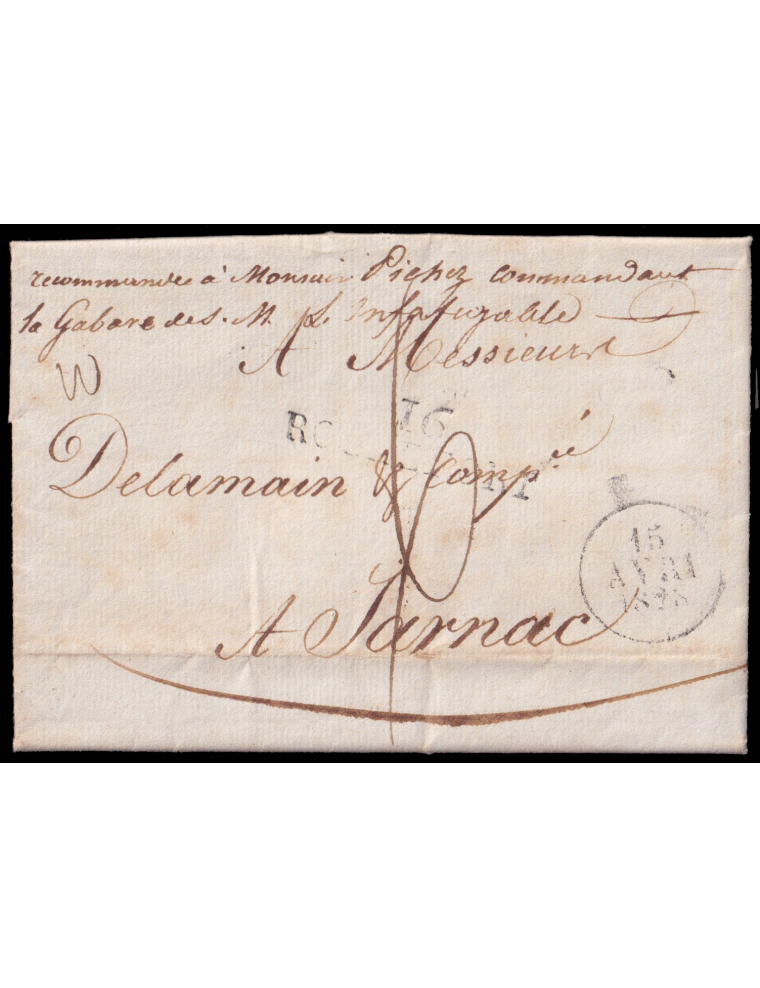 recommandée à Monsieur Pichez commandant
la Gabare de S. M. L'Infatigable
A Messieurs
16
Delamain & Comp.ie
15
AVRI
1828
A Jarnac